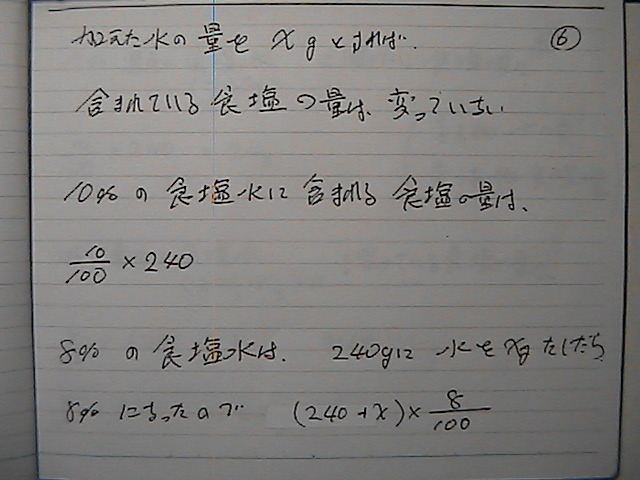 加えた水の量を x g とすれば. ⑥
含まれている食塩の量は、変っていない
10%の食塩水に含まれる食塩の量は、
10/100 × 240
8%の食塩水は. 240gに水をxgたしたら
8%になったので (240+x)× 8/100